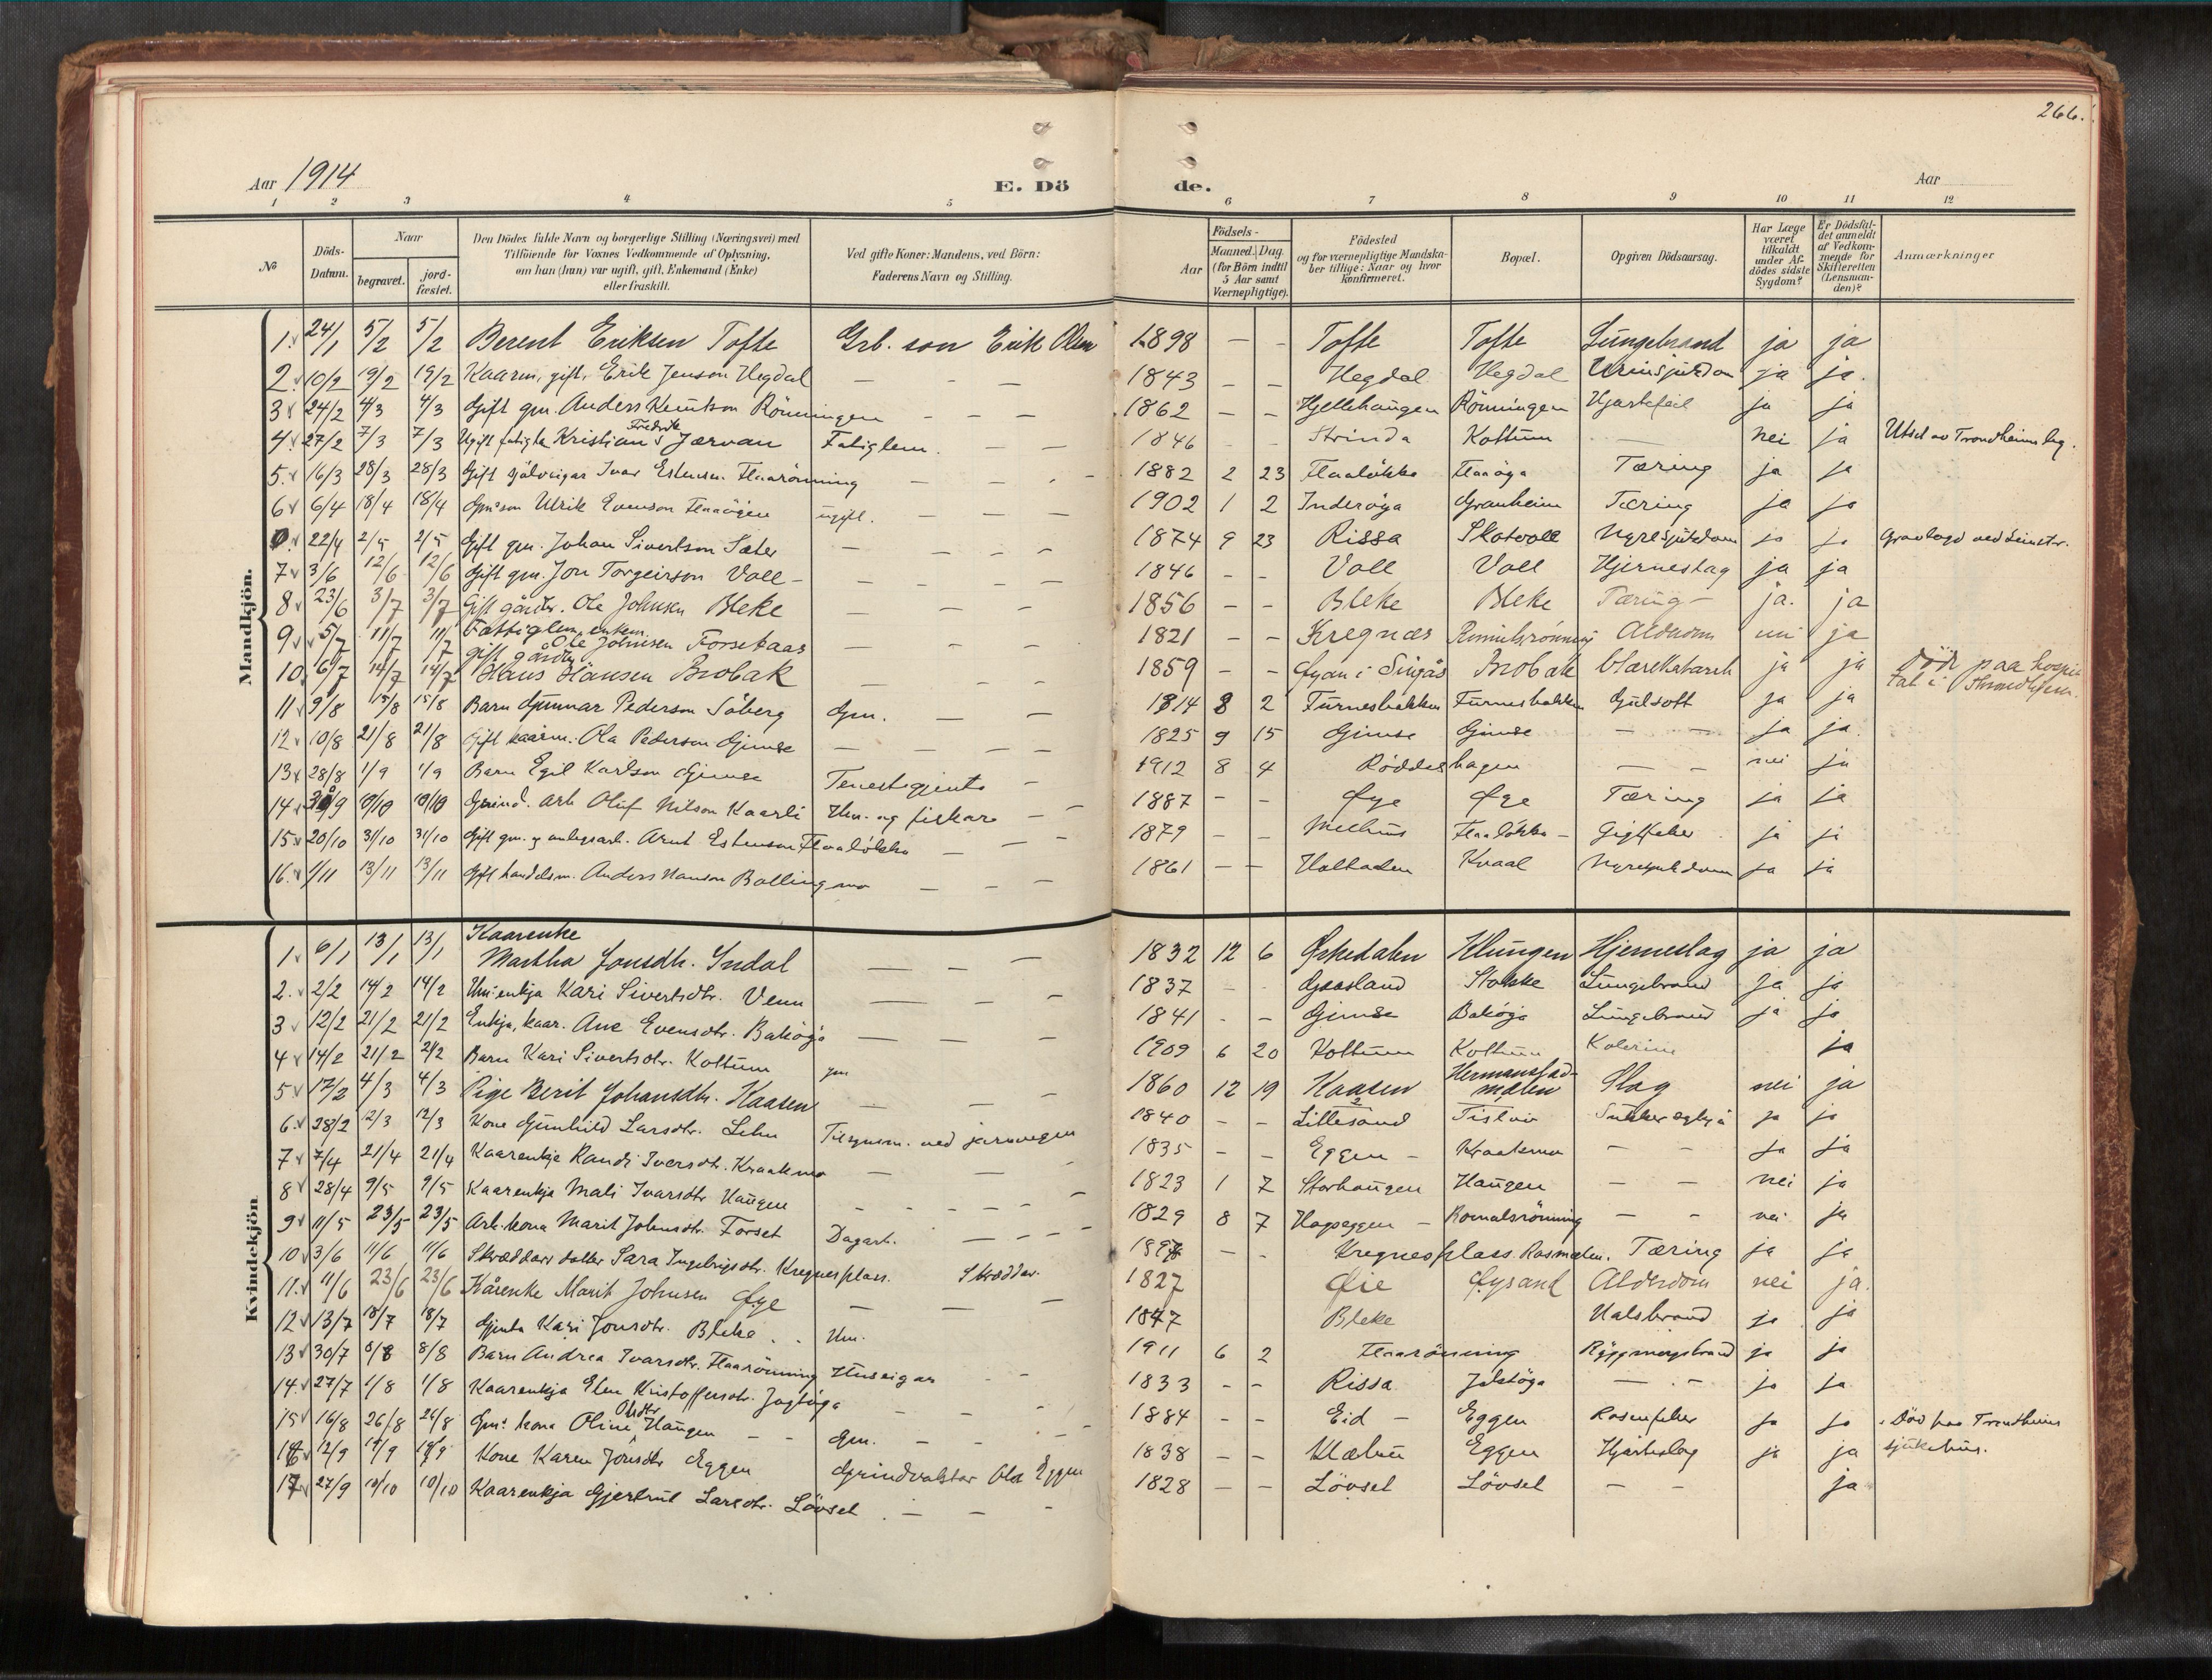 266.
Aar 1914 E. Dö de. Aar
1 2 3 4 5 6 7 8 9 10 11 12
№ Döds-Datum. Naar begravet. jord-fæstet. Den Dödes fulde Navn og borgerlige Stilling (Næringsvei) med Tilföiende for Voxnes Vedkommende af Oplysning, om han (hun) var ugift, gift, Enkemand (Enke) eller fraskilt. Ved gifte Koner: Mandens, ved Börn: Faderens Navn og Stilling. Aar Födsels- Maaned. Dag. (for Börn indtil 5 Aar samt Værnepligtige). Födested og for værnepligtige Mandskaber tillige: Naar og hvor konfirmeret. Bopæl. Opgiven Dödsaarsag. Har Læge været tilkaldt under Afdödes sidste Sygdom? Er Dödsfaldet anmeldt af Vedkommende for Skifteretten (Lensmanden)? Anmærkninger
Mandkjön.
1. 24/1 5/2 5/2 Berent Eriksen Tofte Grb. son Erik Olsen 1898 — — Tofte Tofte Lungebrand ja ja
2. 10/2 19/2 19/2 Kaarm, gift, Erik Jenson Hegdal — - — 1843 — — Hegdal Hegdal Urinsjukdom ja ja.
3 24/2 4/3 4/3 Gift gm. Anders Knutson Rönningen — — — 1862 — — Hjellehaugen Rönningen Hjartefeil ja ja
4. 27/2 7/3 7/3 Ugift fatigle Kristian Fredrik Jærvan Fatiglem. — — 1846 Strinda Kottum — nei ja Utsd av Trondheims fag.
5. 16/3 28/3 28/3 Gift sjölveigar Ivar Estensen Flaarönning — — - - 1882 2 23 Flaalökka Flaaöya Tæring ja ja
6 6/4 18/4 18/4 Gm's son Ulrik Evenson Flaaöyen ugift. — — — 1902 1 2 Inderöya Granheim Tæring ja ja
0. 22/4 2/5 2/5 Gift gm. Johan Sivertson Sæter — — - - 1874 9 23 Rissa Skotvoll Nyresjukdom ja ja Gravlagd ved Leinstr.
7 3/6 12/6 12/6 Gift gm. Jon Torgeirson Voll - — — — 1846 - - Voll Voll Hjerneslag ja ja
8 23/6 3/7 3/7 Gift gårdbr. Ole Johnsen Bleke — — — 1856 - - Bleke Bleke Tæring — ja. ja
9 5/7 11/7 11/7 Fattiglem, enkem. Ole Johnsen Forsetaas — — — 1821 - - Kregnæs Alderdom ja
10 6/7 14/7 14/7 gift gårdbr Hans Hansen Brobak — — — 1859 - - Øyan i Singås Brobak ja ja död paa hospital i Trondhjem.
11 9/8 15/8 15/8 Barn Gunnar Pederson Söberg Gm. — — 1914 8 2 Furuesbakken Furuesbakken Gulsott ja ja
12 10/8 21/8 21/8 Gift kaarm. Ola Pederson Gimse — — — 1825 9 15 Gimse Gimse — — ja ja.
13 28/8 1/9 1/9 Barn Egil Karlson Gimse Tenestgjenta — 1912 8 4 Röddeshagen — - nei ja
14 30/9 10/10 10/10 arb. Oluf Nilson Kaarli Hm. og fiskar — - 1887 - - Øye Øye Tæring ja ja
15 20/10 31/10 31/10 Gift gm. og anlegsarb. Arnt Estenson Flaalökka — — - 1879 - - Melhus Flaalökka - Gigtfeber ja ja
16. 1/11 13/11 13/11 Gift handelsm. Anders Hanson Ballingmo — — — 1861 — — Holtaalen Kvaal Nyresjukdom ja ja
Kvindekjön
1. 6/1 13/1 13/1 Kaarenke Martha Jonsdtr. Indal — — — 1832 12 6 Ørkedalen Klungen Hjerneslag ja ja
2. 2/2 14/2 14/2 Hm: enkja Kari Sivertsdtr. Venn — - - 1837 - - Gaasland Stokke Lungebrand ja ja
3 12/2 21/2 21/2 Enkja, kaar. Ane Evensdtr. Baköya — — — 1841 - - Gimse Baköya Lungebrand ja ja
4 14/2 21/2 21/2 Barn Kari Sivertsdtr. Kottum gm 1909 6 20 Kottum Kottum Kolerine ja
5 17/2 4/3 4/3 Pige Berit Johansdtr. Kaasen — — — 1860 12 19 Kaasen Hermanstadmælen Slag nei ja
6. 28/2 12/3 12/3 Kone Gunhild Larsdtr. Lehn Tilsynsm. ved jarnvegen 1840 - - Lillesand Sukkersykja ja ja
7 7/4 21/4 21/4 Kaarenkje Randi Iversdtr. Kraakmo — — - 1835 - - Eggen - Kraakmo - - ja ja
8 28/4 9/5 9/5 Kaarenkja Mali Ivarsdtr Haugen - - - - 1823 1 7 Storhaugen Haugen — — nei ja
9 11/5 23/5 23/5 Arb.kona Marit Johnsdtr. Forset Dagarb. — - - 1829 8 7 Hageggen - Romulsrönning - - nei ja
10 3/6 11/6 11/6 Skræddardotter Sara Ingebrigtsdtr. Kregnesplass. Skræddar. 1897 - - Kregnesplass. Rosmælen. Tæring ja ja
11. 11/6 23/6 23/6 Kårenke Marit Johnsen Øye — — — 1827 Øie Øysand Alderdom nei ja.
12 13/7 18/7 18/7 Gjenta Kari Jonsdtr. Bleke . . Hm. 1847 Bleke Halsbrand ja ja
13 30/7 8/8 8/8 Barn Andrea Ivarsdtr. Flaarönning Huseigar - - 1911 6 2 Flaarönning Ryggmergsbrand ja ja
14. 27/7 1/8 1/8 Kaarenkja Elen Kristoffersdtr. Jagtöya — - - 1833 - - Rissa Jaktöya — . - ja ja
15 16/8 26/8 26/8 Gm: kona Oline Olsdtr Haugen — - Gm. - — - 1884 - - Eid - Eggen Rosenfeber ja ja Död paa Trondheims sjukehus.
16 12/9 19/9 19/9 Kone Karen Jonsdtr Eggen Grindvaktar Ola Eggen 1838 - - Klæbu Eggen Hjarteslag ja ja
17 27/9 10/10 10/10 Kaarenkja Gjertrud Larsdtr. Lövset . — — - 1828 — - Lövset Lövset — - ja